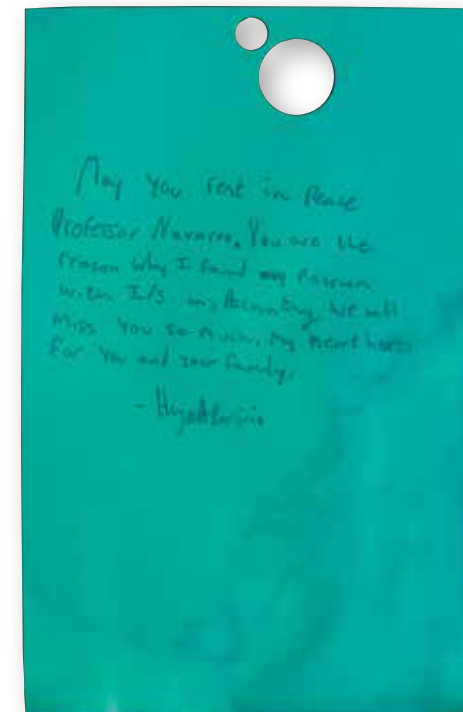 May You rest in Peace
Professor Navarro, You are the
reason why I found my Passion
within I/S in, Accounting We will
Miss You so Much, My heart hurts
For You and your family,
-